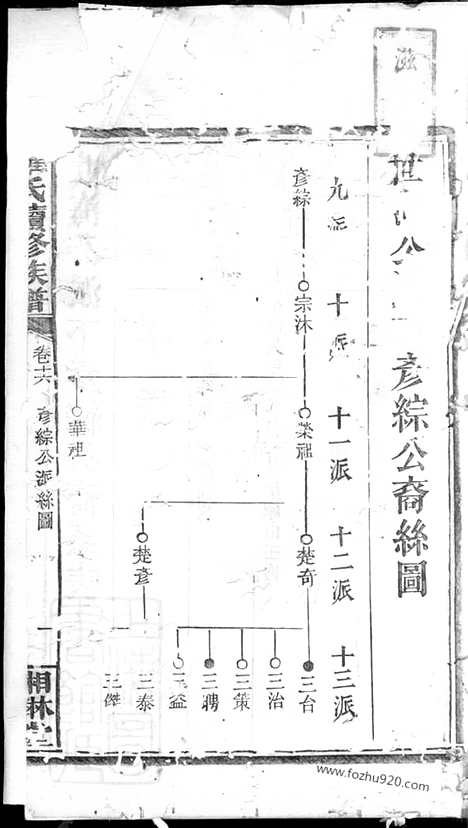 世 公
彥綜公裔絲圖
九派
十派
十一派
十二派
十三派
彥綜
宗沐
榮祖
楚奇
三台
三治
三策
三聘
三益
楚彥
三泰
三傑
華祖
氏續修族譜
卷十六
彥綜公派絲圖
一
相林
www.fozhu920.com